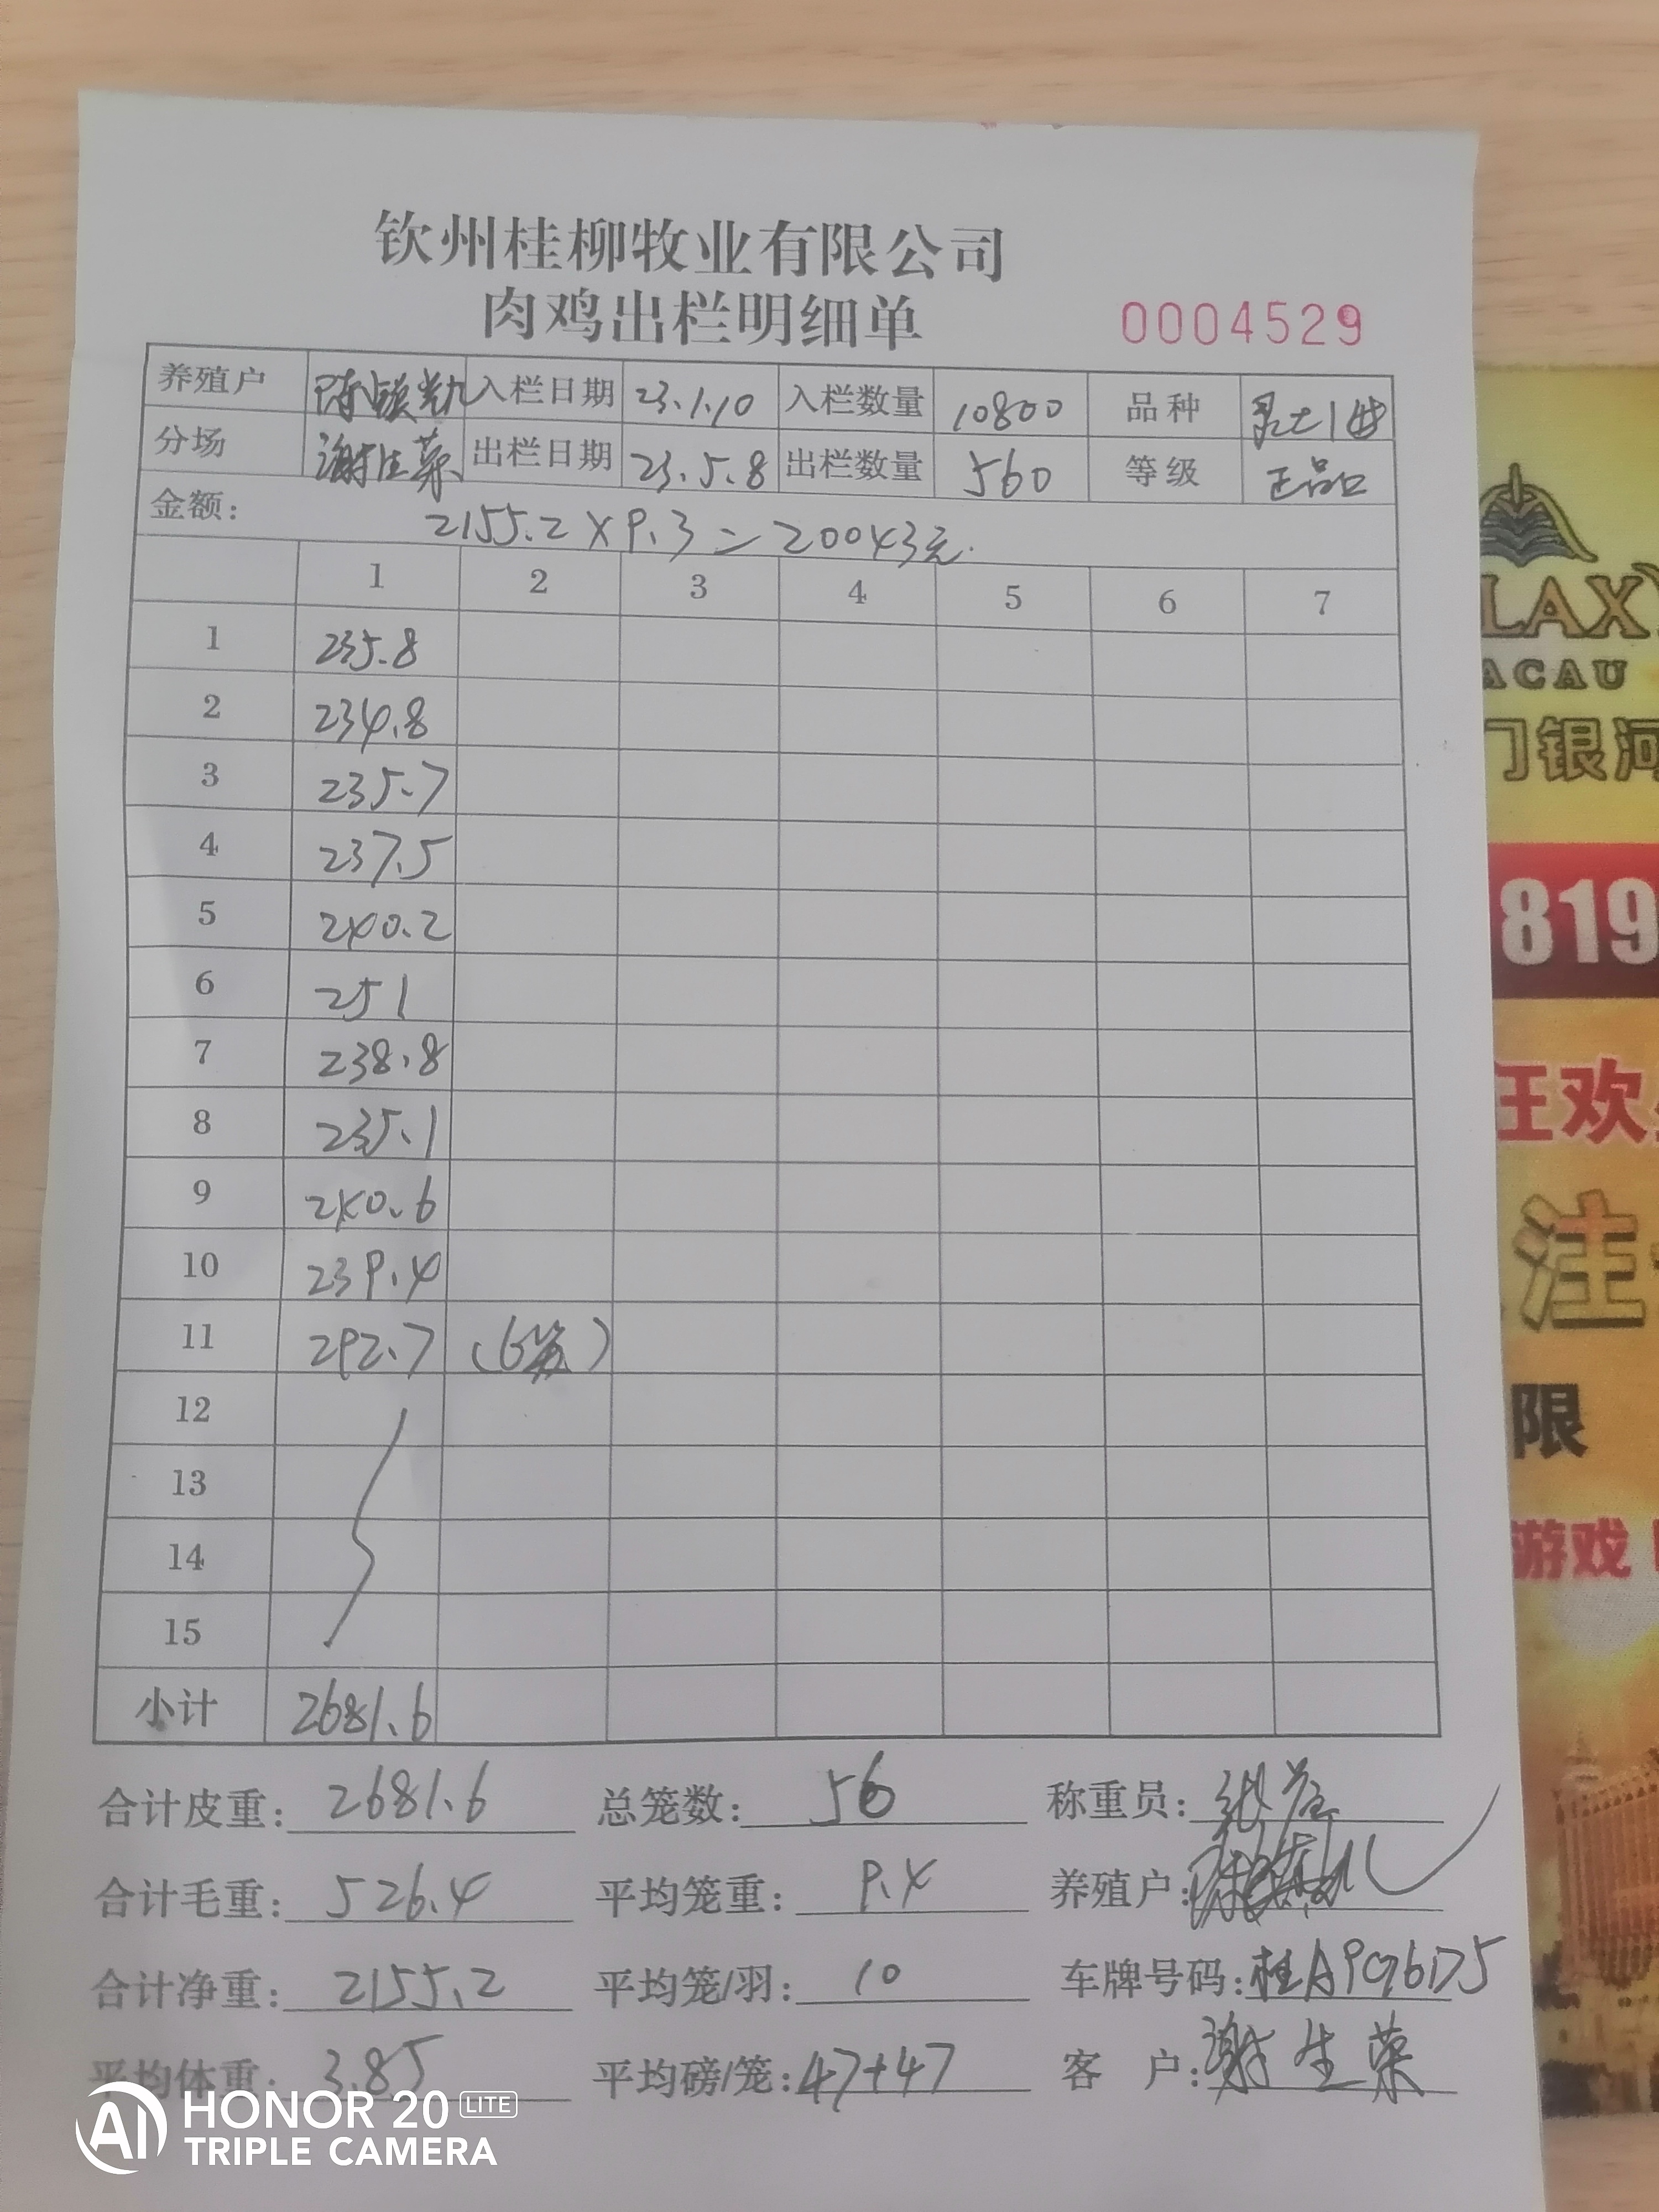 钦州桂柳牧业有限公司
肉鸡出栏明细单 0004529
养殖户 陈 入栏日期 23.1.10 入栏数量 10800 品种
分场 谢生菜 出栏日期 23.5.8 出栏数量 560 等级 正品
金额: 2155.2×9.3=20043元.
1 2 3 4 5 6 7
1 235.8
2 234.8
3 235.7
4 237.5
5 240.2
6 251
7 238.8
8 235.1
9 240.6
10 239.4
11 292.7 (6笼)
12
13
14
15
小计 2681.6
合计皮重: 2681.6 总笼数: 56 称重员:
合计毛重: 526.4 平均笼重: 9.4 养殖户:
合计净重: 2155.2 平均笼/羽: 10 车牌号码:
平均体重: 3.85 平均磅/笼: 47+47 客 户: 谢生菜
LAX
ACAU
门银河
819
狂欢
注
限
游戏
AI HONOR 20 LITE
TRIPLE CAMERA